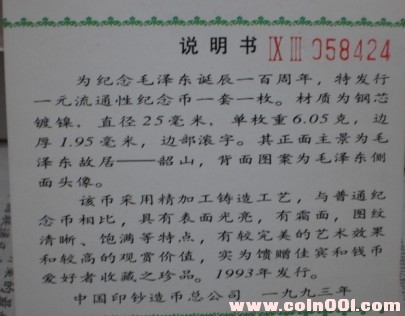 说明书 IX III 058424
为纪念毛泽东诞辰一百周年，特发行
一元流通性纪念币一套一枚。材质为钢芯
镀镍，直径25毫米，单枚重6.05克，边
厚1.95毫米，边部滚字。其正面主景为毛
泽东故居——韶山，背面图案为毛泽东侧
面头像。
该币采用精加工铸造工艺，与普通纪
念币相比，具有表面光亮，有霜面，图纹
清晰、饱满等特点，有较完美的艺术效果
和较高的观赏价值，实为馈赠佳宾和钱币
爱好者收藏之珍品。1993年发行。
中国印钞造币总公司 一九九三年
www.coln001.com